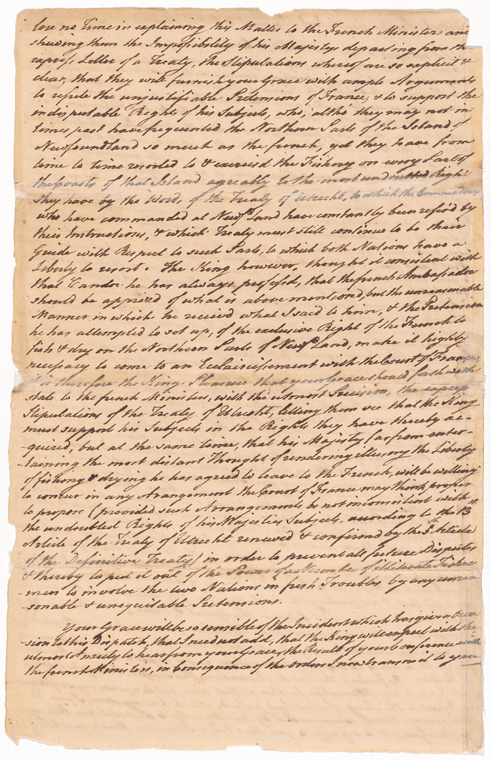 lose no Time in explaining this Matter to the French Ministers and
shewing them the Impossibility of his Majesty's departing from the
express Letter of a Treaty, the Stipulations whereof are so explicit &
clear, that they will furnish your Grace with ample Arguments
to refute the unjustifiable Pretensions of France, & to support the
indisputable Rights of his Subjects, who, altho' they may not in
times past have frequented the Northern Parts of the Island of
Newfoundland so much as the french, yet they have from
time to time resorted to & exercised the Fishery on every Part of
the Coasts of that Island agreably to the most undoubted Right
they have by the Words of the Treaty of Utrecht, to which the Commodores
who have commanded at Newfd. Land have constantly been refer'd by
their Instructions, & which Treaty must still continue to be their
Guide with Respect to such Parts, to which both Nations have a
Liberty to resort. The King however, thought it consistent with
that Candor he has always professed, that the french Ambassador
should be apprized of what is above mentioned, but the unreasonable
Manner in which he received what I said to him, & the Pretension
he has attempted to set up, of the exclusive Right of the French to
fish & dry on the Northern Part of Newfd. Land, make it highly
necessary to come to an Ecclaircissement with the Court of France;
It is therefore the King's Pleasure that your Grace should forthwith
state to the french Ministers, with the utmost Precision, the express
Stipulations of the Treaty of Utrecht, letting them see that the King
must support his Subjects in the Rights they have thereby ac-
quired, but at the same time, that his Majesty far from enter-
taining the most distant Thought of rendering illusory the Liberty
of fishing & drying he has agreed to leave to the French, will be willing
to concur in any Arrangement the Court of France may think proper
to propose (provided such Arrangements be not inconsistent with
the undoubted Rights of his Majesties Subjects, according to the 13th
Article of the Treaty of Utrecht renewed & confirmed by the 5th Article
of the Definitive Treaty) in order to prevent all future Disputes
& thereby to put it out of the Power of a Number of illiterate Fisher
men to involve the two Nations in fresh Troubles by any unrea
sonable & unequitable Pretensions.
Your Grace will be so sensible of the Incident which has given Occa
sion to this Dispatch, that I need not add, that the King will expect with the
utmost Anxiety to hear from your Grace, the Result of your Conference with
the french Ministers, in Consequence of the orders I now transmit to you